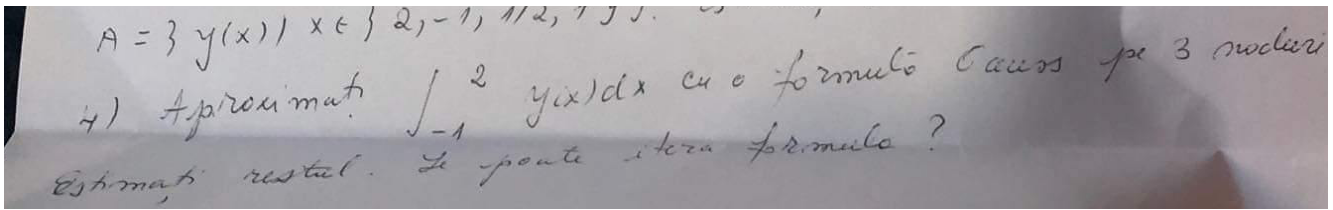 A = } y(x) ) x ∈ } 2, -1, 1/2, 1 } }.
4) Aproximați ∫_{-1}^{2} y(x)dx cu o formulă Gauss pe 3 noduri
Estimați restul. Se poate itera formula ?